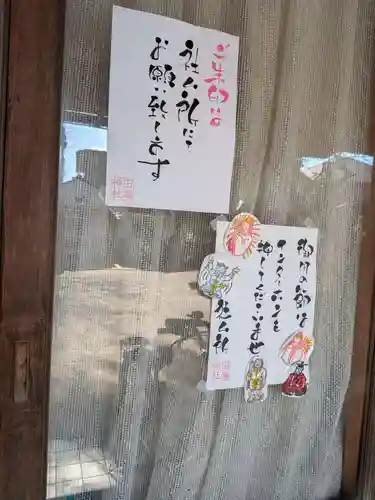 ご朱印は
社ム所にて
お願い致します
御用の節は
インターホンを
押してくださいませ
社ム所